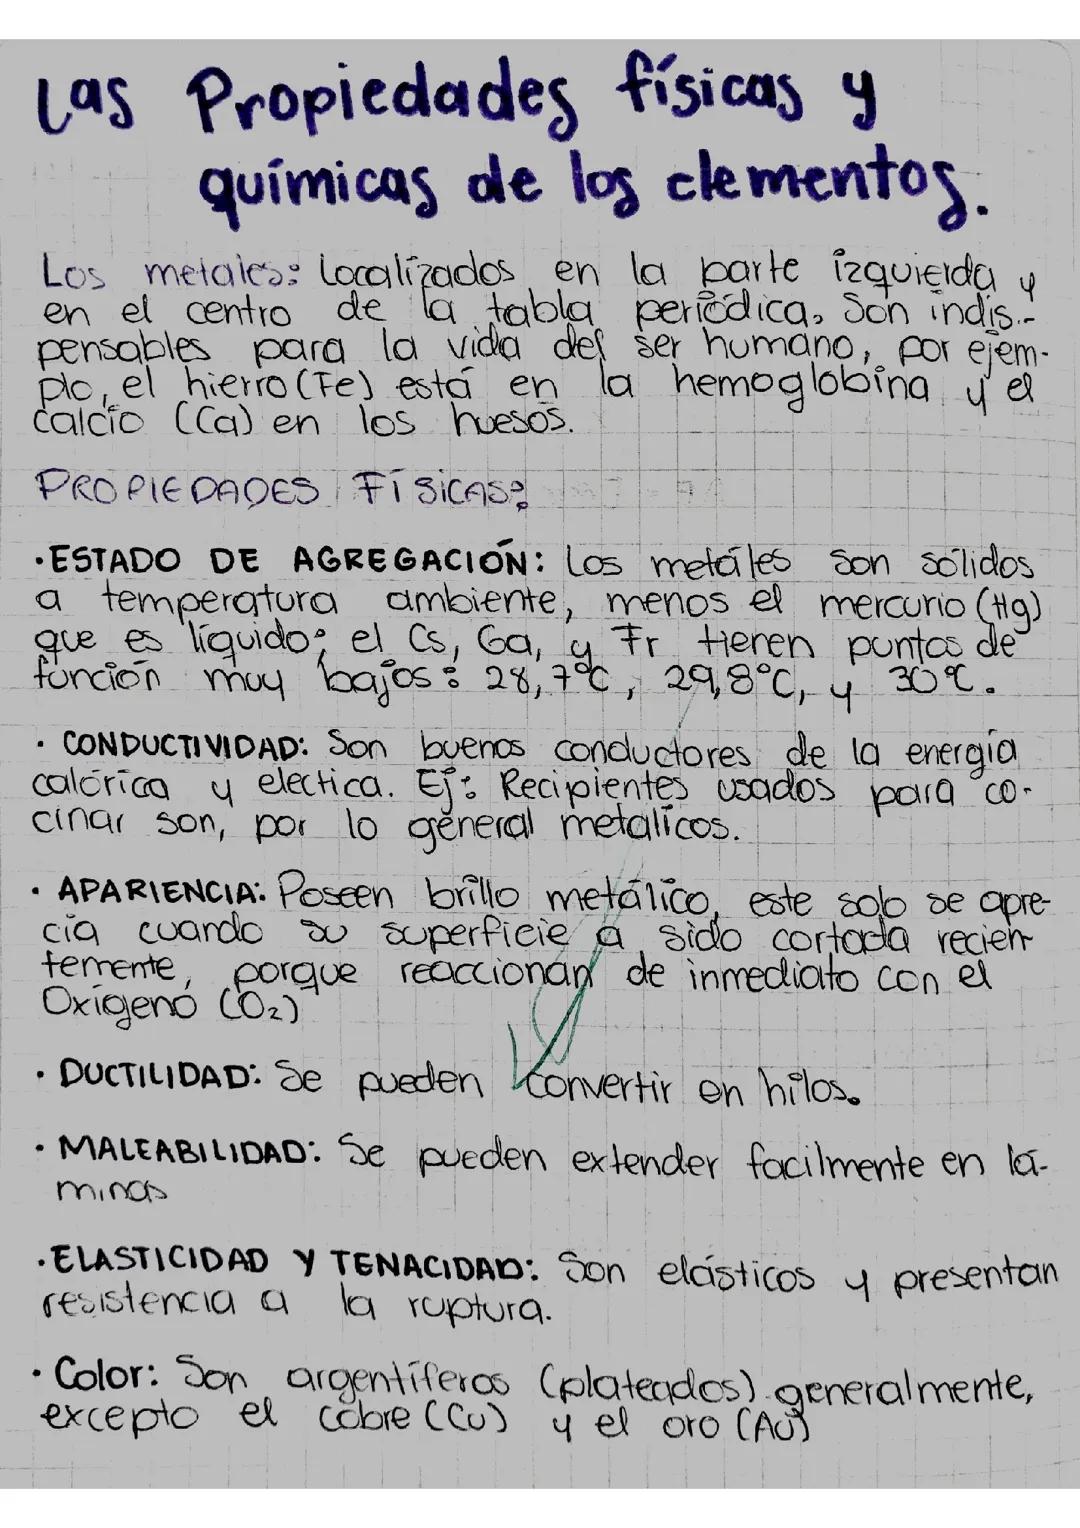 Las Propiedades físicas y
químicas de los elementos.
Los metales: Localizados en la parte izquierda y
en el centro de la tabla periódica, Son indis-
pensables para la vida del ser humano, por ejem-
plo, el hierro (Fe) está en la hemoglobina y el
calcio (Ca) en los huesos.
PROPIEDADES FÍSICAS:
· ESTADO DE AGREGACIÓN: Los metáles son sólidos
a temperatura ambiente, menos el mercurio (Hg)
que es líquido; el Cs, Ga, y Fr tienen puntos de
función muy bajos: 28,7°C, 29,8°C, y 30°C.
· CONDUCTIVIDAD: Son buenos conductores de la energía
calórica y electica. Ej: Recipientes usados para co-
cinar son, por lo general metalicos.
· APARIENCIA: Poseen brillo metálico, este solo se apre-
cia cuando su superficie a sido cortada recien-
temente, porque reaccionan de inmediato con el
Oxígeno (O₂)
· DUCTILIDAD: Se pueden convertir en hilos.
· MALEABILIDAD: Se pueden extender facilmente en lá-
minas
· ELASTICIDAD Y TENACIDAD: Son elásticos y presentan
resistencia a la ruptura.
· Color: Son argentíferos (plateados) generalmente,
excepto el cobre (Cu) y el oro (Au)